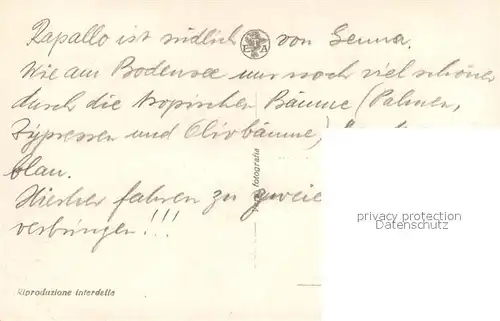 Rapallo ist südlich von Genua.
E A
Wie am Bodensee nur noch viel schöner
durch die tropischen Bäume (Palmen,
Zypressen und Olivbäume)
blau.
Hierher fahren zu zweie
verbringen!!!
Fotografia
privacy protection
Datenschutz
Riproduzione interdetta